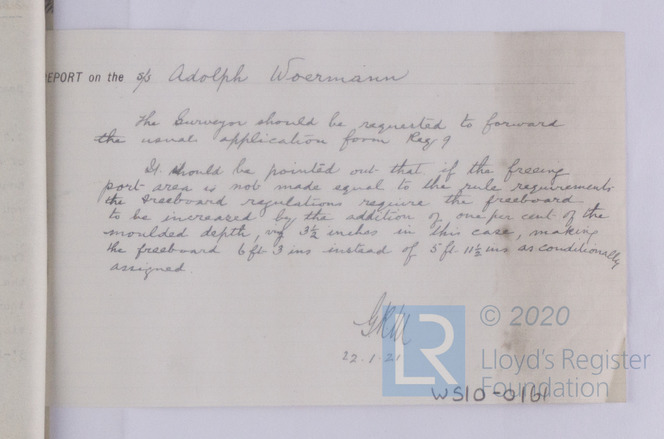 REPORT on the s/s Adolph Woermann
The Surveyor should be requested to forward
the usual application form Reg 9
It should be pointed out that if the freeing
port area is not made equal to the rule requirements
the freeboard regulations require the freeboard
to be increased by the addition of one per cent of the
moulded depth, viz 3½ inches in this case, making
the freeboard 6 ft 3 ins instead of 5 ft 11½ ins as conditionally
assigned.
22.1.21
LR
© 2020
Lloyd's Register
Foundation
WS10-0161